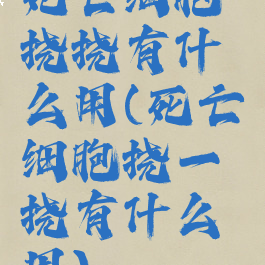 死亡细胞
挠挠有什
么用(死亡
细胞挠一
挠有什么
用)